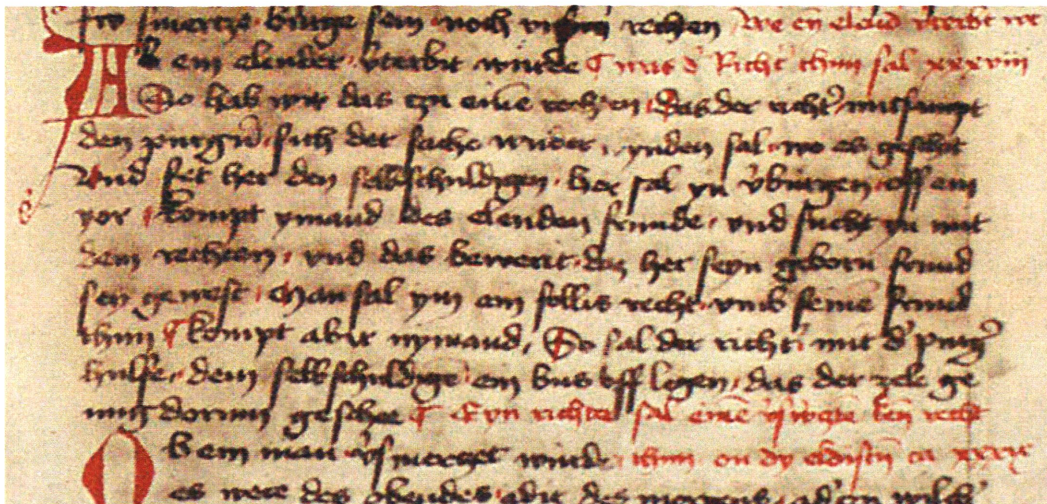 smertze burge sein noch rechen We en elend v̓terbt
Ab ein elender v̓terbit wurde ¶ was d̓ Richt̓ thun sal xxxviii
So hab wir das czu eine rechten das der richt̓ mitsampt
den purgn̄ sich der sache wider ynden sal wo es geschit
Und set her den selbschuldigen her sal yn v̓burgen off ein
yor ¶ kompt ymand des elenden frunde und sucht yn mit
dem rechten und das bewerit das her seyn geborn frund
sey gewest man sal ym ein follis recht umb seinē frund
thun ¶ kompt aber nymand So sal der richt̓ mit d̓ purg̓
hulfe dem selbschuldigē ein bus off legen das der zele ge
nug dorum geschee ¶ Eyn richter sal einē recht
Ob ein man wurde thun on dy eldistn̄ ca xxxix
es were des obendes adir des morgens